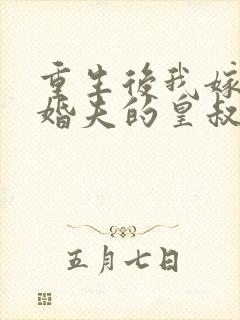 重生後我嫁
婚夫的皇叔
五月七日